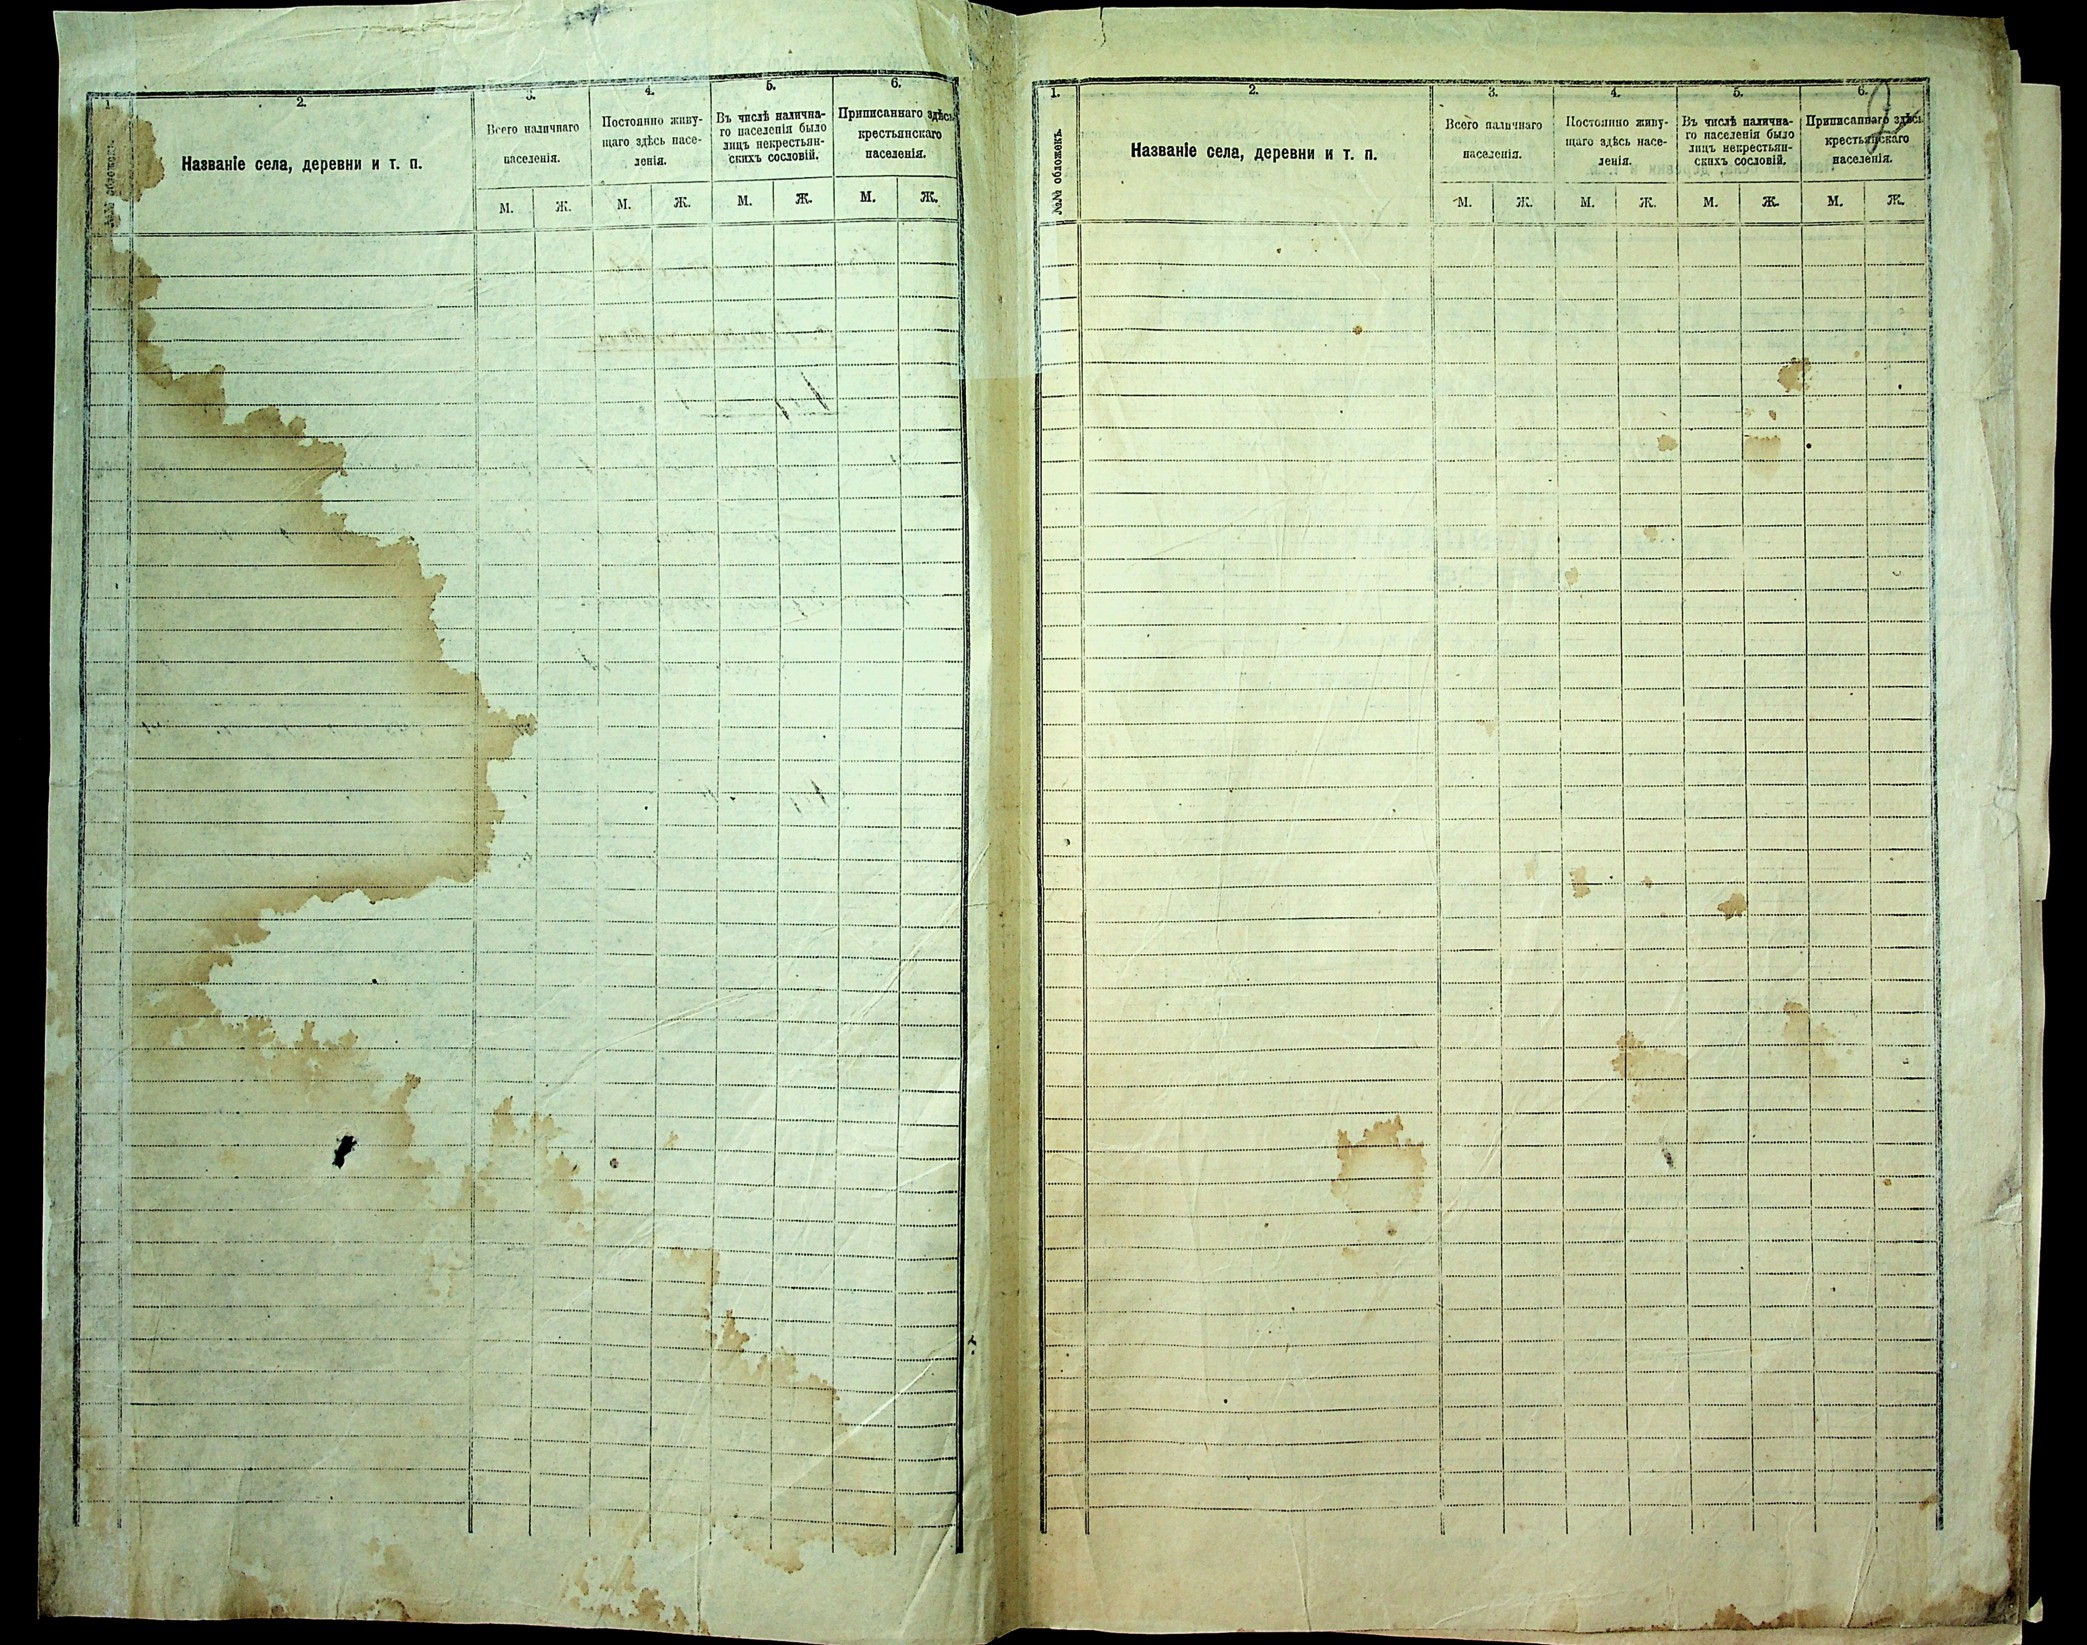 1.
2.
3.
4.
5.
6.
№№ обложекъ.
Названіе села, деревни и т. п.
Всего наличнаго
населенія.
Постоянно живу-
щаго здѣсь насе-
ленія.
Въ числѣ налична-
го населенія было
лицъ некрестьян-
скихъ сословій.
Приписаннаго здѣсь
крестьянскаго
населенія.
М. Ж. М. Ж. М. Ж. М. Ж.
1.
2.
3.
4.
5.
6.
2
№№ обложекъ.
Названіе села, деревни и т. п.
Всего наличнаго
населенія.
Постоянно живу-
щаго здѣсь насе-
ленія.
Въ числѣ налична-
го населенія было
лицъ некрестьян-
скихъ сословій.
Приписаннаго здѣсь
крестьянскаго
населенія.
М. Ж. М. Ж. М. Ж. М. Ж.